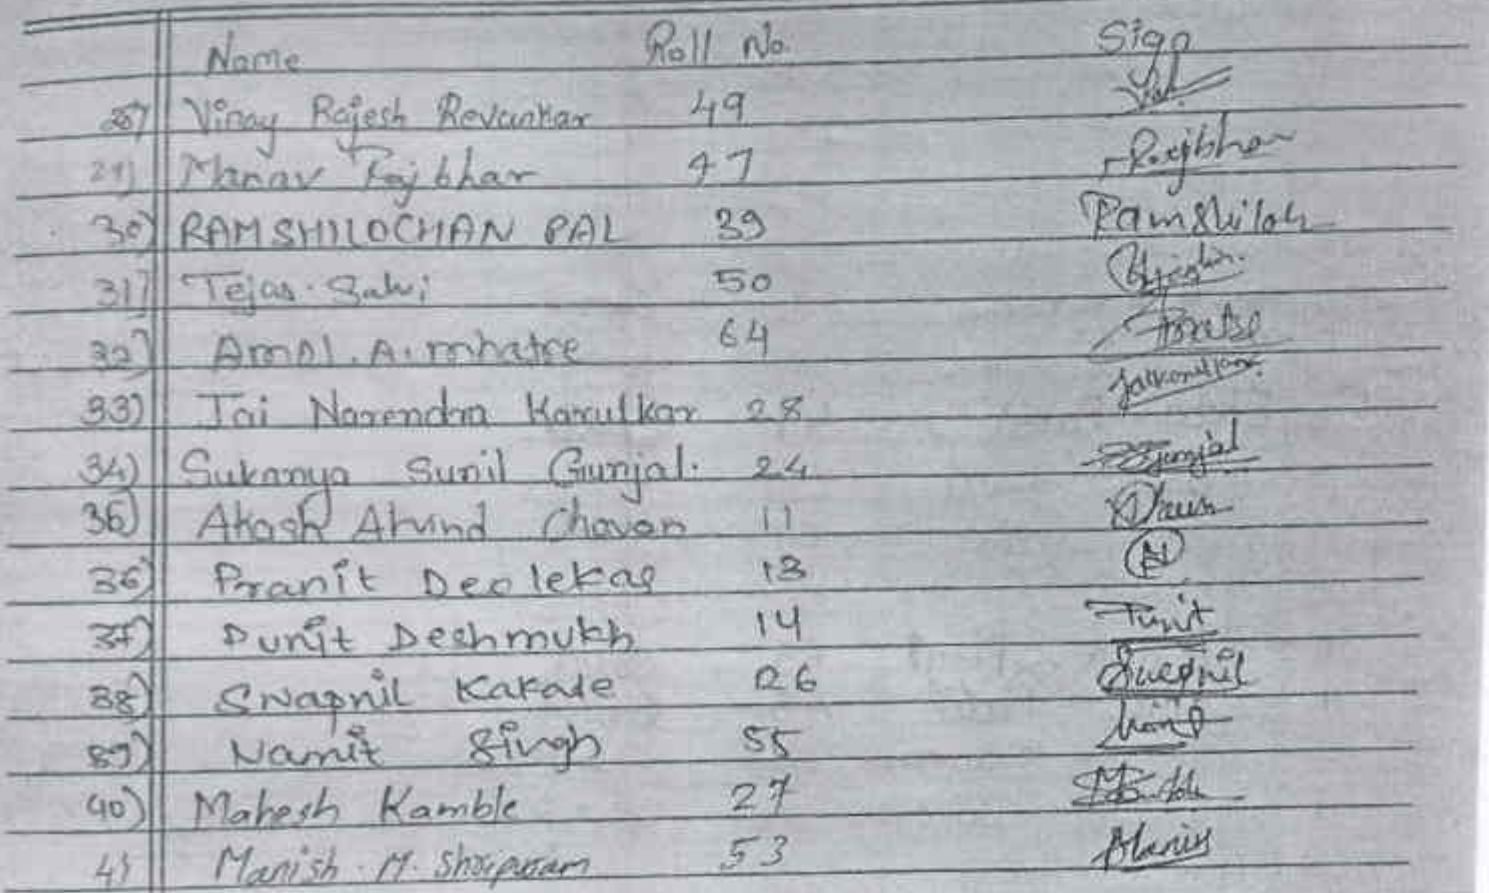 Name Roll No. Sign
Vinay Rajesh Revankar 49
29) Manav Rajbhar 47 Rajbhar
30) RAMSHILOCHAN PAL 39 Ramshiloch
31) Tejas. Salvi 50
32) Amol. A. mhatre 64
33) Jai Narendra Karulkar 28
34) Sukanya Sunil Gunjal. 24 Gunjal
36) Akash Arvind Chavan 11
36) Pranit Deolekar 13
37) Punit Deshmukh 14 Punit
38) Swapnil Kakade 26 Swapnil
39) Namit Singh 55
40) Mahesh Kamble 27
41 Manish. M. 53 Manish